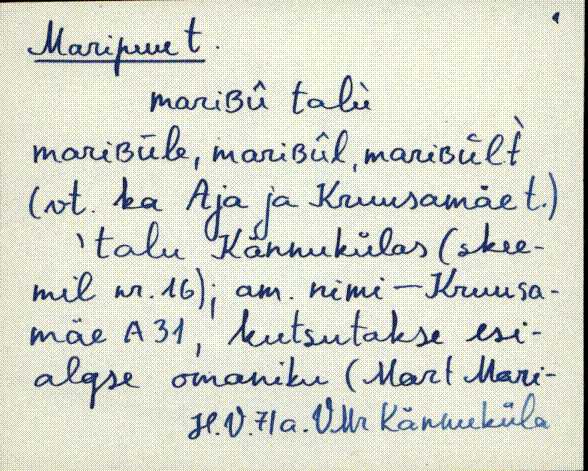 Maripuu t.
mariBû talù
mariBūle, mariBûl, mariBūl̀t
(vt. ka Aja ja Kruusamäe t.)
'talu Kännukülas (skee-
mil nr. 16); am. nimi — Kruusa-
mäe A 31, kutsutakse esi-
algse omaniku (Mart Mari-
H.V. 71a. VMr Kännuküla